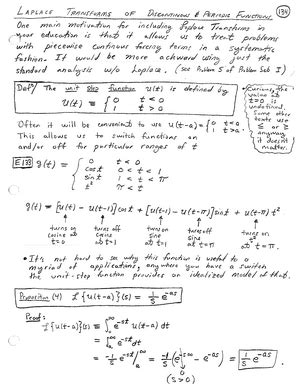 LAPLACE TRANSFORMS OF DISCONTINUOUS & PERIODIC FUNCTIONS
134
One main motivation for including Laplace Transforms in
your education is that it allows us to treat problems
with piecewise continuous forcing terms in a systematic
fashion. It would be more awkward using just the
standard analysis w/o Laplace. (see Problem 5 of Problem Set I)
Defⁿ/ The unit step function u(t) is defined by
u(t) = { 0 t < 0
1 t > 0
Curious, the
value at
t=0 is
undefined.
Some other
texts use
≤ or ≥
anyway
it doesn't
matter.
Often it will be convenient to use u(t-a) = { 0 t < a
1 t > a
This allows us to switch functions on
and/or off for particular ranges of t
E133 g(t) = { 0 t < 0
cost 0 < t < 1
sint 1 < t < π
t² π < t
g(t) = [u(t) - u(t-1)]cost + [u(t-1) - u(t-π)]sint + u(t-π)t²
turns on
cosine at
t=0
turns off
cosine
at t=1
turns on
sine
at t=1
turns off
sine
at t=π
turns on
t²
at t=π.
• It's not hard to see why this function is useful to a
myriad of applications, anywhere you have a switch
the unit-step function provides an idealized model of that.
Proposition (4) ℒ{u(t-a)}(s) = 1/s e^-as
Proof:
ℒ{u(t-a)}(s) = ∫₀^∞ e^-st u(t-a) dt
= ∫ₐ^∞ e^-st dt
= -1/s e^-st |ₐ^∞ = -1/s (e^-s∞ - e^-as) = 1/s e^-as .
0
(s>0)